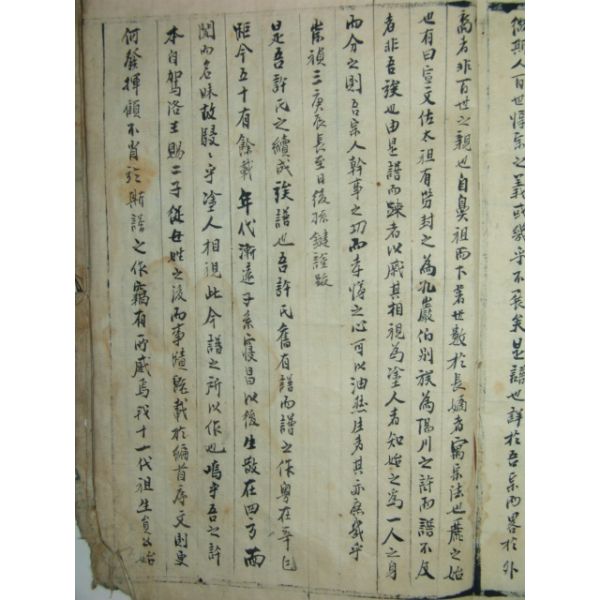 從斯人百世惇宗之義或幾乎不美矣是譜也詳於吾宗而畧於外
裔者非百世之親也自鼻祖而下書世數於長嫡者寓宗法也薦之始
也有曰宣文佐太祖有勞封之為孔巖伯別族為陽川之許而譜不及
者非吾族也由是譜而踈者以戚其相視為塗人者知始之為一人之身
而分之則吾宗人幹事之功而孝悌之心可以油然生者其亦庶幾乎
崇禎三庚辰長至日後孫鍵謹跋
是吾許氏之續成族譜也吾許氏舊有譜而譜之作粤在辛巳
距今五十有餘載年代漸遠子系寢昌以後生散在四方而
聞而名昧故駸〻乎塗人相視此今譜之所以作也嗚乎吾之許
本自駕洛王賜二子從母姓之後而事蹟略載於編首序文則更
何發揮顧不肖於斯譜之作竊有所感焉我十一代祖生員公始